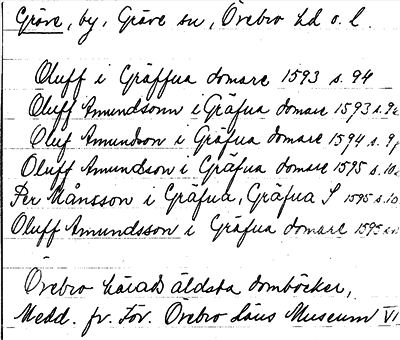 Gräve, by, Gräve sn, Örebro hd o. l.
Oluff i Gräffua domare 1593 s. 94
Oluff Amundsonn i Gräfua domare 1593 s. 9
Oluf Amundson i Gräfua domare 1594 s. 9
Oluff Amundson i Gräfua domare 1595 s. 10
Per Månsson i Gräfua, Gräfua S 1595 s. 10
Oluff Amundsson i Gräfua domare 1595 s.
Örebro härads äldsta domböcker,
Medd. fr. För. Örebro läns Museum VI